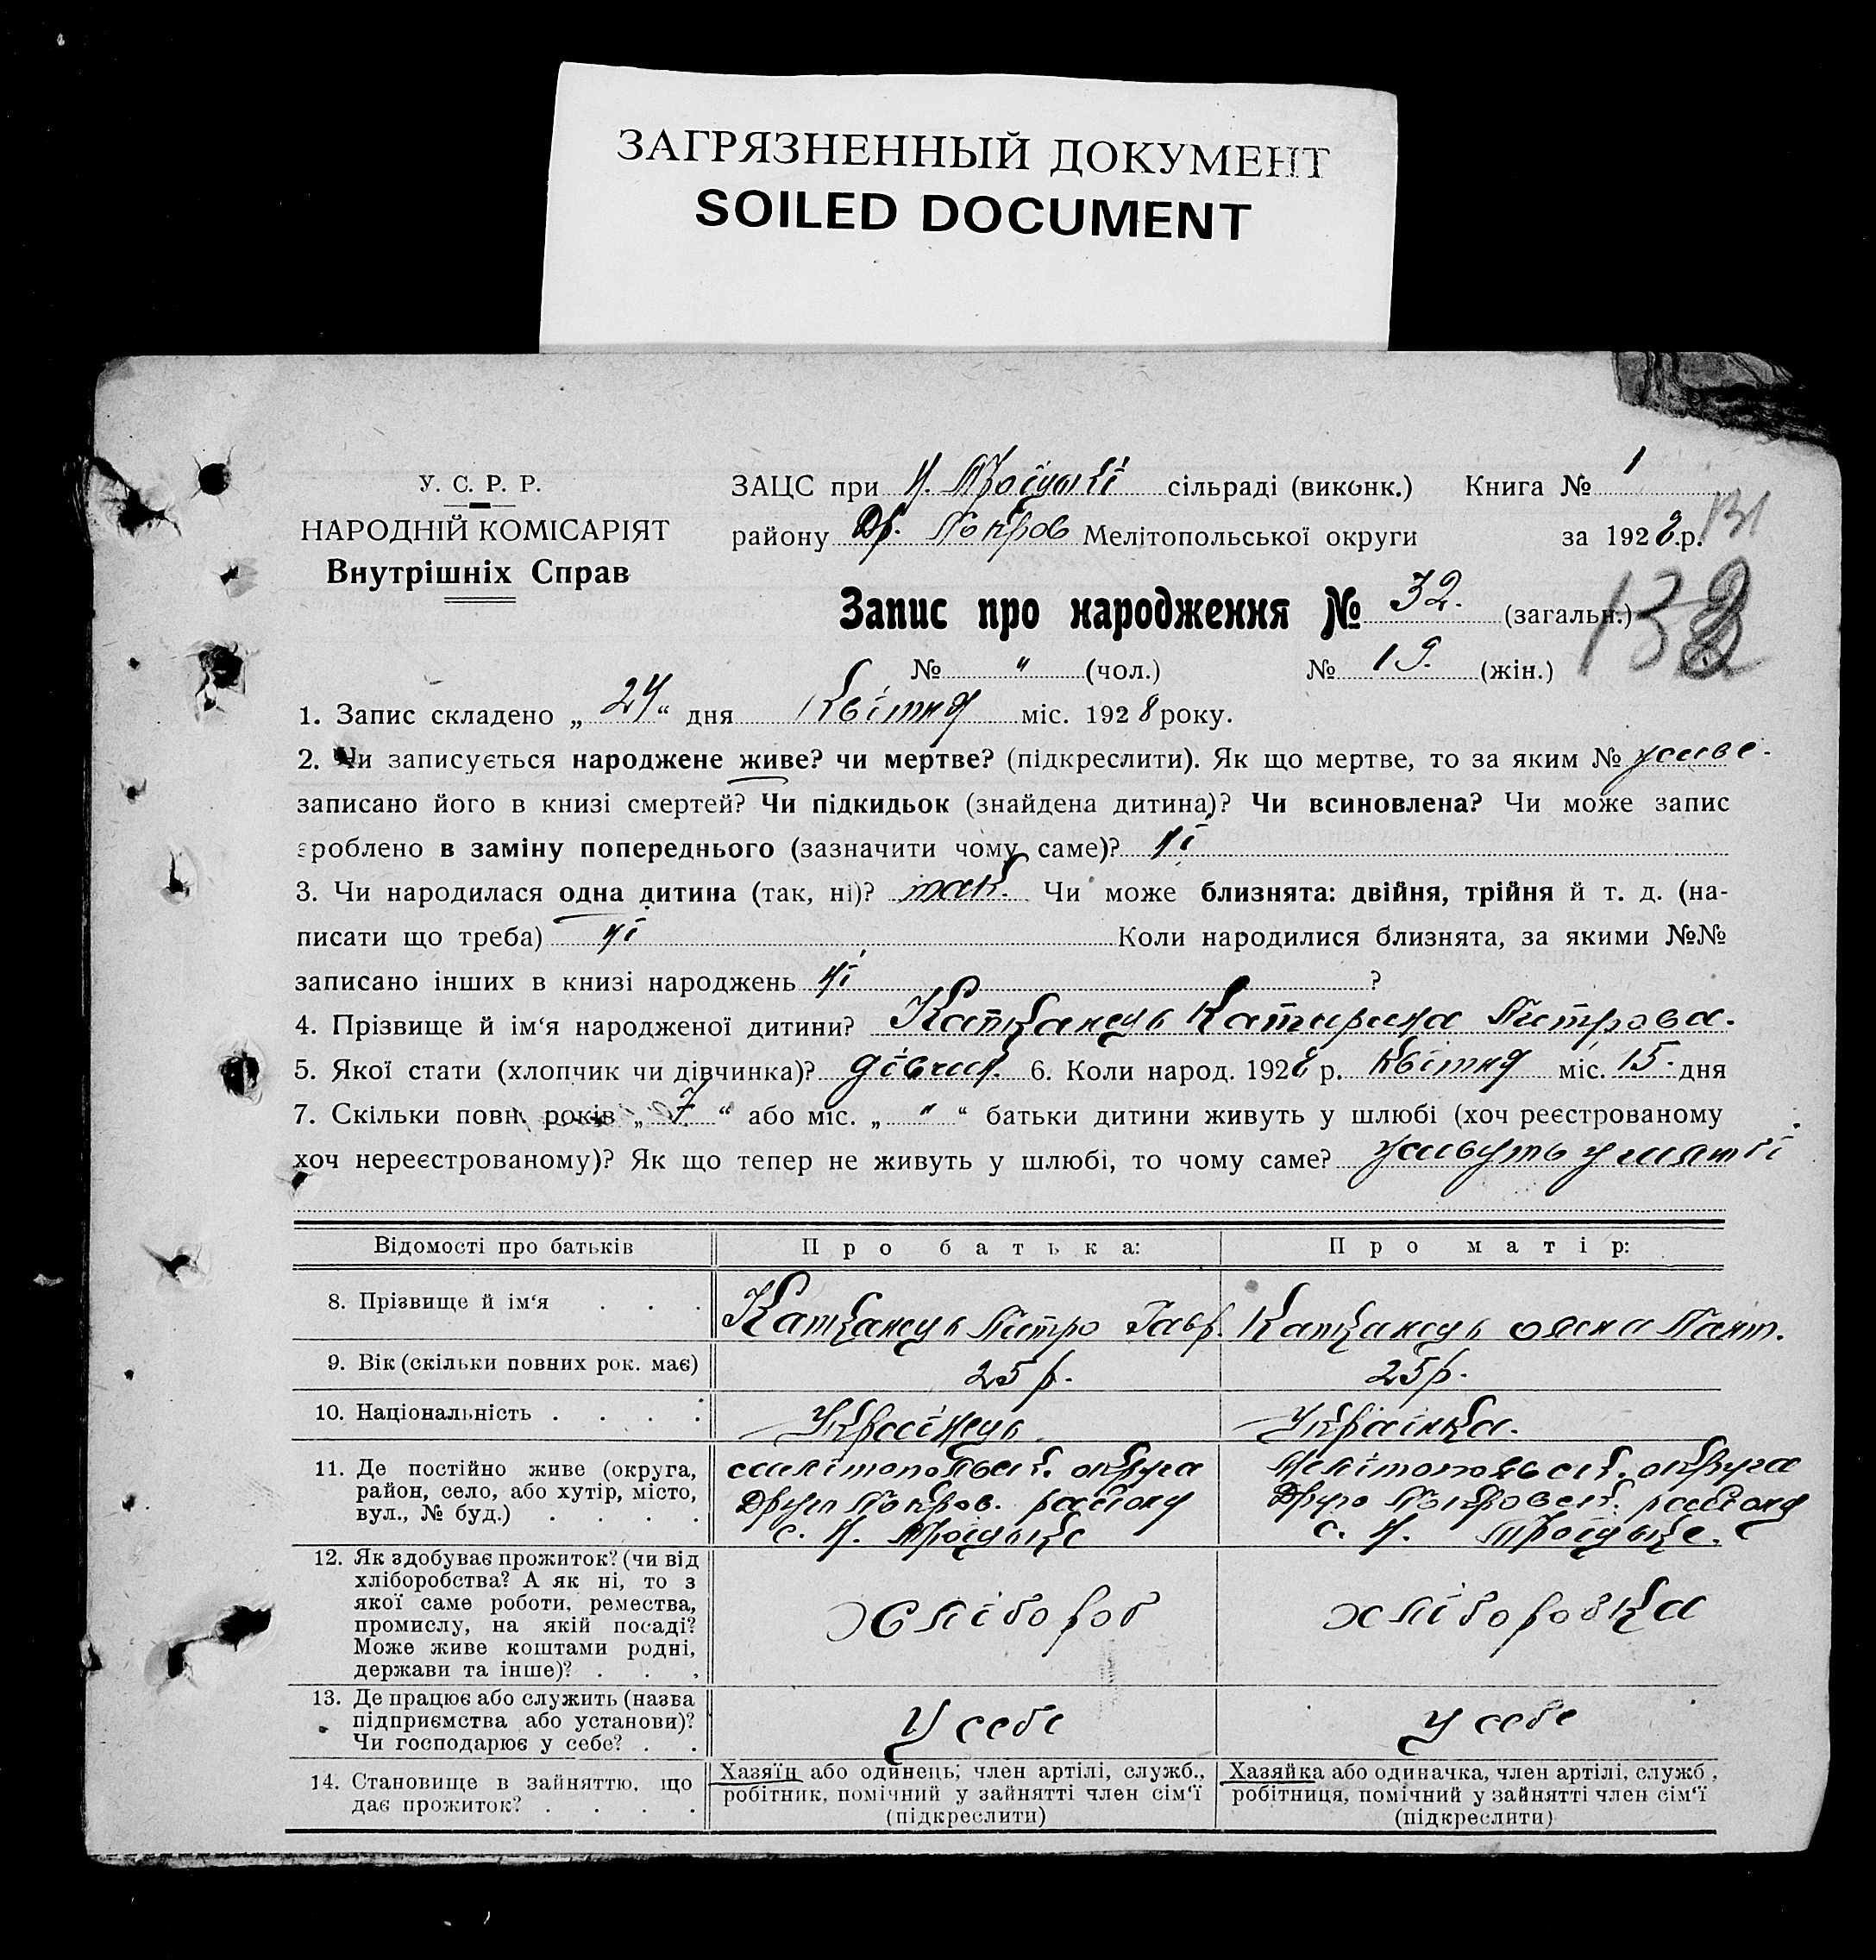 ЗАГРЯЗНЕННЫЙ ДОКУМЕНТ
SOILED DOCUMENT
У. С. Р. Р.
НАРОДНІЙ КОМІСАРІЯТ
Внутрішніх Справ
ЗАЦС при Н. сільраді (виконк.) Книга № 1
району Др. Покров Мелітопольської округи за 1928 р. 131
Запис про народження № 32. (загальн.)
№ " (чол.) № 19. (жін.)
1. Запис складено „ 24 “ дня Квітня міс. 1928 року.
2. Чи записується народжене живе? чи мертве? (підкреслити). Як що мертве, то за яким № живе.
записано його в книзі смертей? Чи підкидьок (знайдена дитина)? Чи всиновлена? Чи може запис
зроблено в заміну попереднього (зазначити чому саме)? ні
3. Чи народилася одна дитина (так, ні)? так. Чи може близнята: двійня, трійня й т. д. (на-
писати що треба) ні Коли народилися близнята, за якими №№
записано інших в книзі народжень ні ?
4. Прізвище й ім‘я народженої дитини? Катирина Питрова.
5. Якої стати (хлопчик чи дівчинка)? дівчин. 6. Коли народ. 1928 р. Квітня міс. 15 дня
7. Скільки повн. років „ 7 “ або міс. „ " “ батьки дитини живуть у шлюбі (хоч реєстрованому
хоч нереєстрованому)? Як що тепер не живуть у шлюбі, то чому саме? живуть у
Відомості про батьків Про батька: Про матір:
8. Прізвище й ім‘я . . . Питро Гавр. Олена Пант.
9. Вік (скільки повних рок. має) 25 р. 25 р.
10. Національність . . . . Українець Українка.
11. Де постійно живе (округа, район, село, або хутір, місто, вул., № буд.) . . . .
мелітопольськ. округа
Друго Покров. району
с. Н.
Мелітопольськ. округа
Друго Покровськ. району
с. Н.
12. Як здобуває прожиток? (чи від хліборобства? А як ні, то з якої саме роботи, ремества, промислу, на якій посаді? Може живе коштами родні, держави та інше)? . . .
хлібороб хліборобка
13. Де працює або служить (назва підприємства або установи)? Чи господарює у себе? . .
У себе у себе
14. Становище в зайняттю, що дає прожиток? . . . .
Хазяїн або одинець; член артілі, служб., робітник, помічний у зайнятті член сім‘ї (підкреслити)
Хазяйка або одиначка, член артілі, служб., робітниця, помічний у зайнятті член сім‘ї (підкреслити)